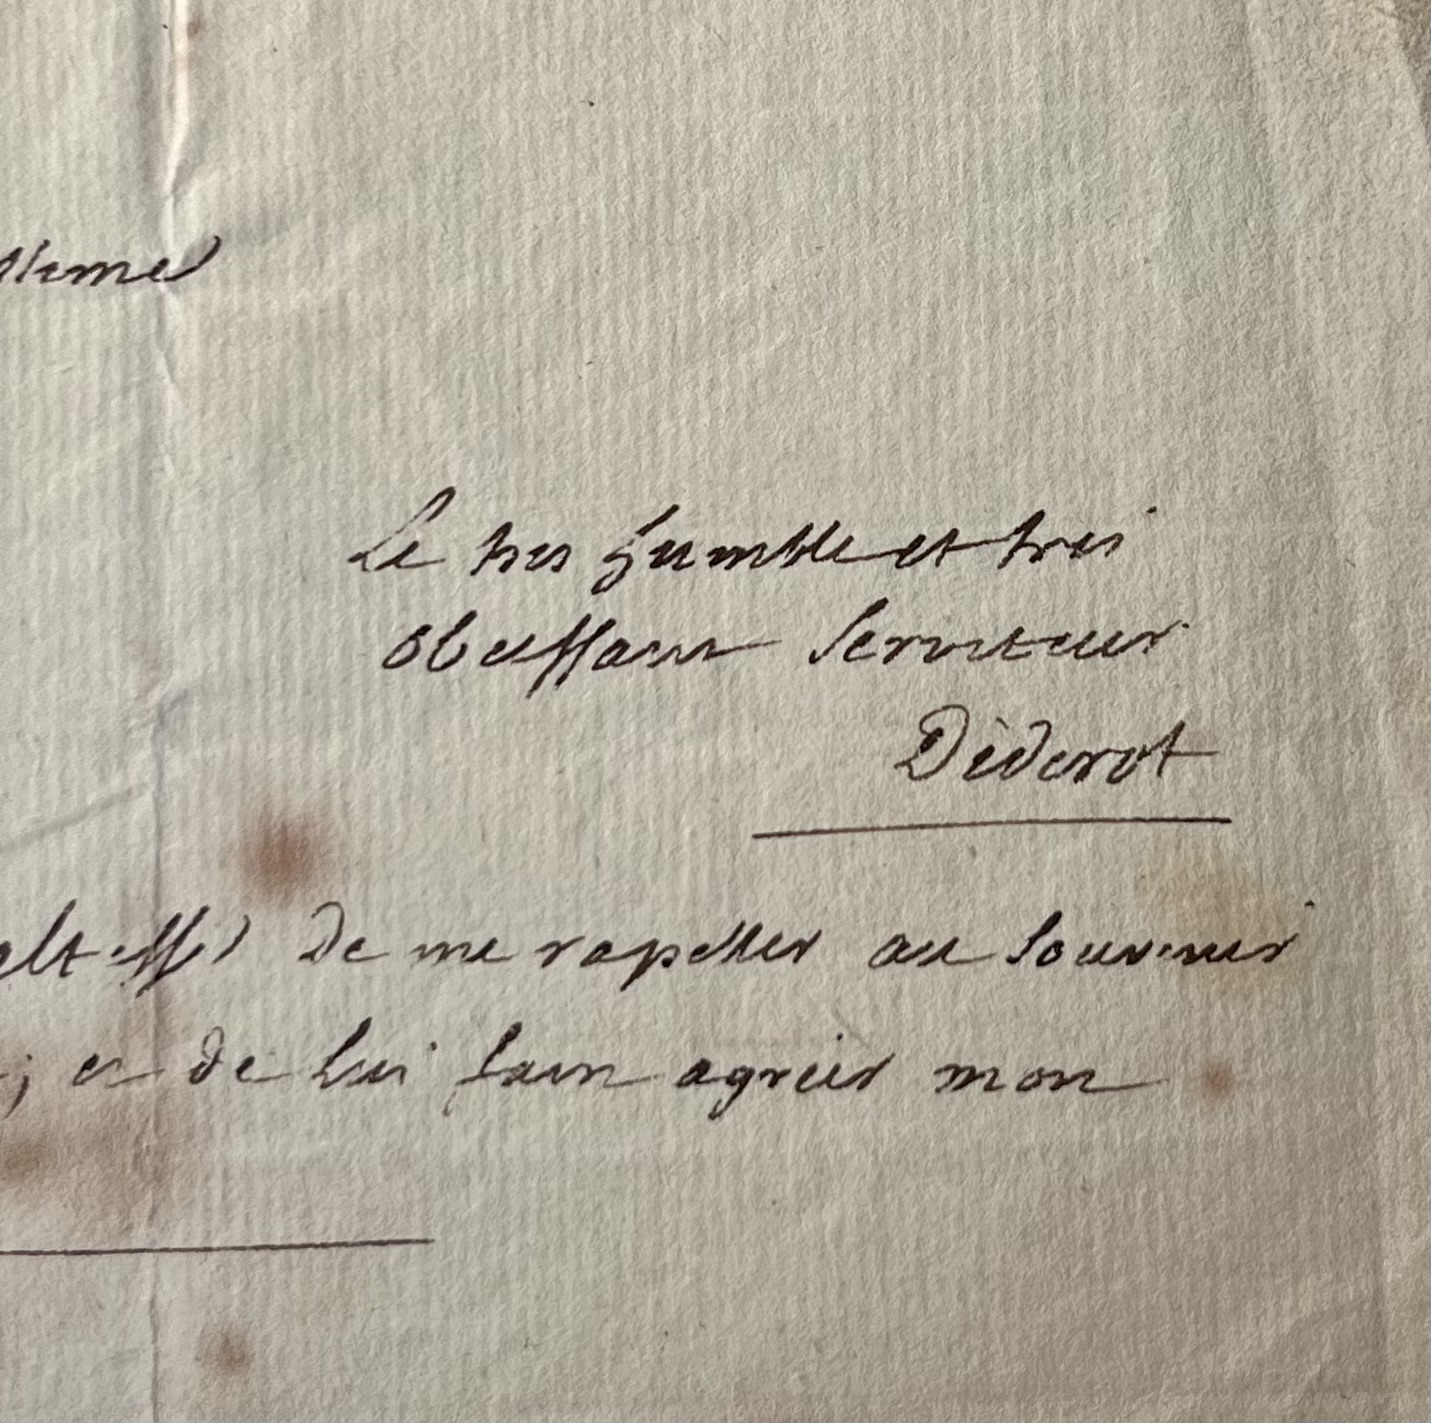 Le tres humble et tres
obeissant serviteur
Diderot
altesse de me rapeller au souvenir
; et de lui faire agréer mon